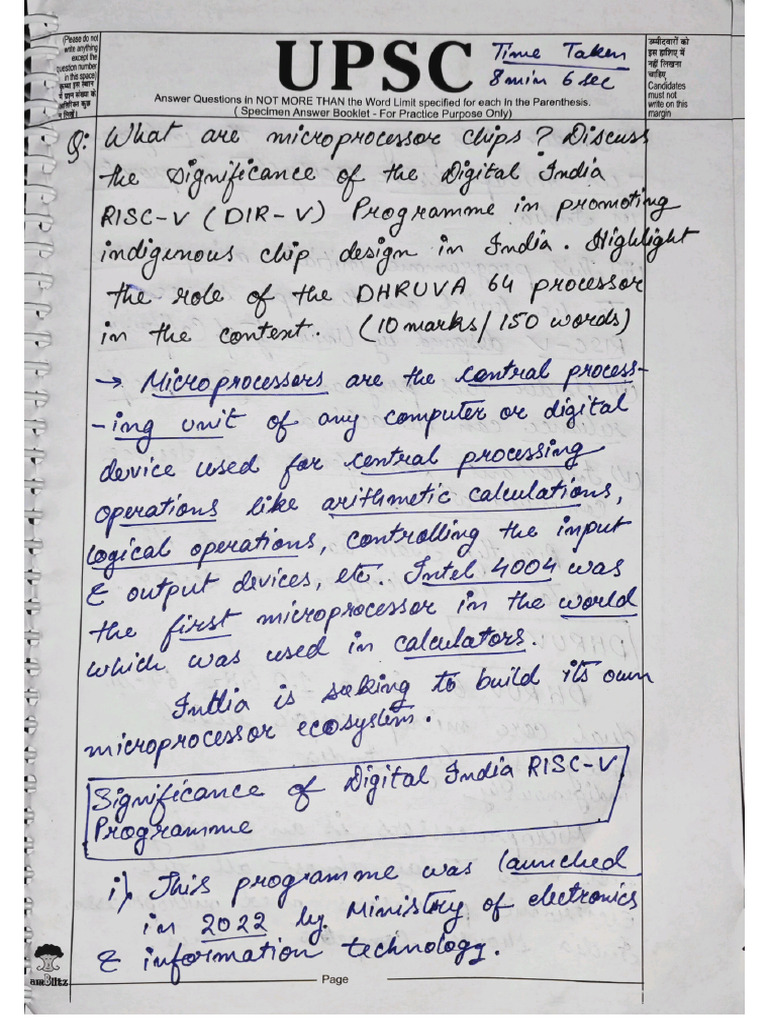 (Please do not
write anything
except the
question number
in this space)
UPSC
Time Taken
8 min 6 sec
उम्मीदवारों को
इस हाशिए में
नहीं लिखना
चाहिए
Candidates
must not
write on this
margin
Answer Questions in NOT MORE THAN the Word Limit specified for each in the Parenthesis.
( Specimen Answer Booklet - For Practice Purpose Only)
Q: What are microprocessor chips? Discuss
the significance of the Digital India
RISC-V (DIR-V) Programme in promoting
indigenous chip design in India. Highlight
the role of the DHRUVA 64 processor
in the context. (10 marks/150 words)
→ Microprocessors are the central process-
-ing unit of any computer or digital
device used for central processing
operations like arithmetic calculations,
logical operations, controlling the input
& output devices, etc. Intel 4004 was
the first microprocessor in the world
which was used in calculators.
India is seeking to build its own
microprocessor ecosystem.
Significance of Digital India RISC-V
Programme
i) This programme was launched
in 2022 by Ministry of electronics
& information technology.
Page